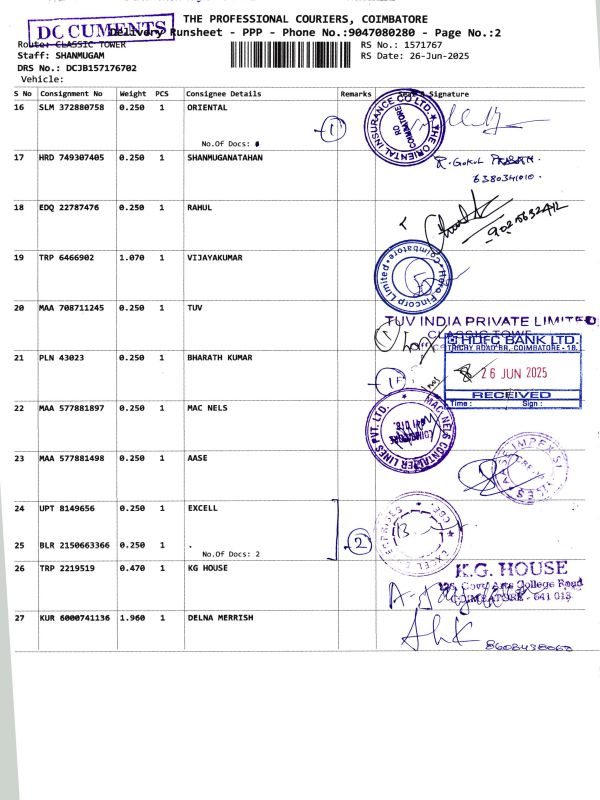 THE PROFESSIONAL COURIERS, COIMBATORE
DOCUMENTS
Delivery Runsheet - PPP - Phone No.:9047080280 - Page No.:2
Route: CLASSIC TOWER
RS No.: 1571767
Staff: SHANMUGAM
RS Date: 26-Jun-2025
DRS No.: DCJB157176702
Vehicle:
S No Consignment No Weight PCS Consignee Details Remarks Seal & Signature
16 SLM 372880758 0.250 1 ORIENTAL
No.Of Docs:
1
THE ORIENTAL INSURANCE CO LTD.
COIMBATORE
17 HRD 749307405 0.250 1 SHANMUGANATAHAN
R. Gokul
6380341010.
18 EDQ 22787476 0.250 1 RAHUL
19 TRP 6466902 1.070 1 VIJAYAKUMAR
Hero Fincorp Limited
Coimbatore
20 MAA 708711245 0.250 1 TUV
TUV INDIA PRIVATE LIMITED
CLASSIC TOWE
HDFC BANK LTD.
TRICHY ROAD BR., COIMBATORE - 18.
21 PLN 43023 0.250 1 BHARATH KUMAR
26 JUN 2025
RECEIVED
Time : Sign :
22 MAA 577881897 0.250 1 MAC NELS
MAC NELS CONTAINER LINES PVT. LTD.
641 018.
23 MAA 577881498 0.250 1 AASE
24 UPT 8149656 0.250 1 EXCELL
2
25 BLR 2150663366 0.250 1 .
No.Of Docs: 2
26 TRP 2219519 0.470 1 KG HOUSE
K.G. HOUSE
Govt Arts College Road
COIMBATORE - 641 018
27 KUR 6000741136 1.960 1 DELNA MERRISH